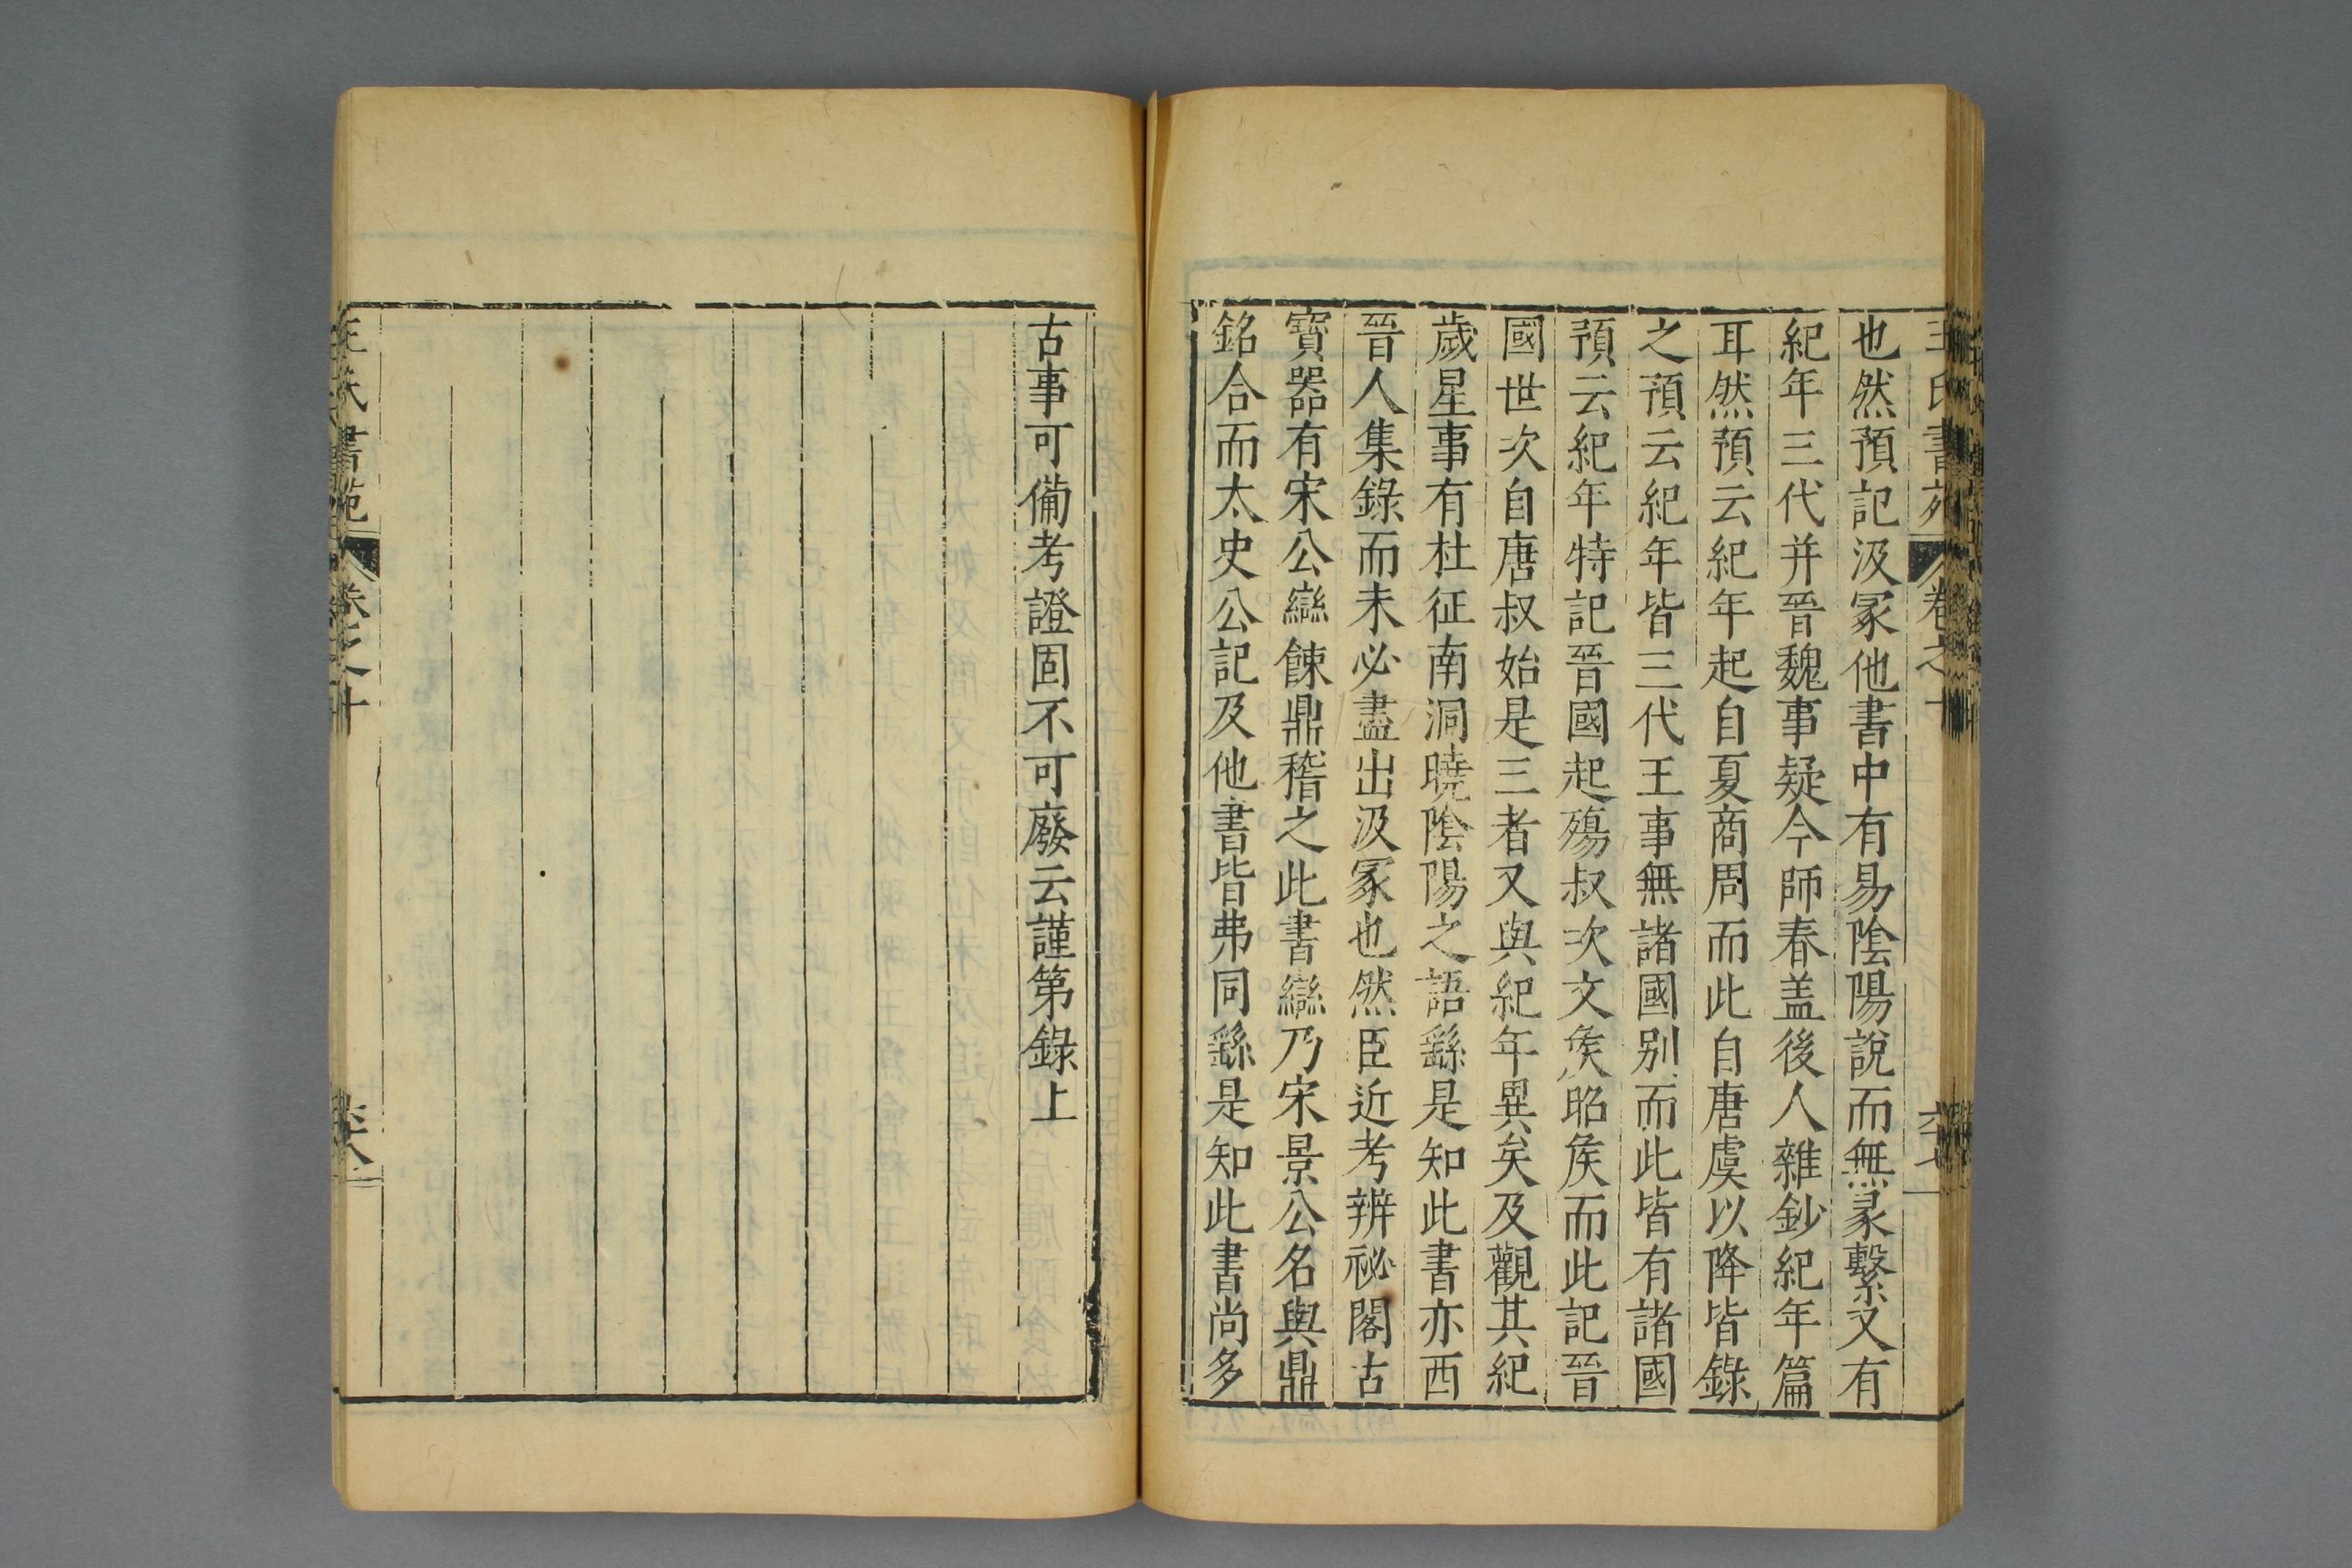 王氏書苑 卷之十 六十七
也然預記汲冢他書中有易陰陽說而無彖繫又有
紀年三代并晉魏事疑今師春盖後人雜鈔紀年篇
耳然預云紀年起自夏商周而此自唐虞以降皆錄
之預云紀年皆三代王事無諸國别而此皆有諸國
預云紀年特記晉國起殤叔次文矦昭矦而此記晉
國世次自唐叔始是三者又與紀年異矣及觀其紀
歲星事有杜征南洞曉陰陽之語繇是知此書亦西
晉人集錄而未必盡出汲冢也然臣近考辨祕閣古
寶器有宋公䜌餗鼎稽之此書䜌乃宋景公名與鼎
銘合而太史公記及他書皆弗同繇是知此書尚多
古事可備考證固不可廢云謹第錄上
王氏書苑 卷之十 六十八